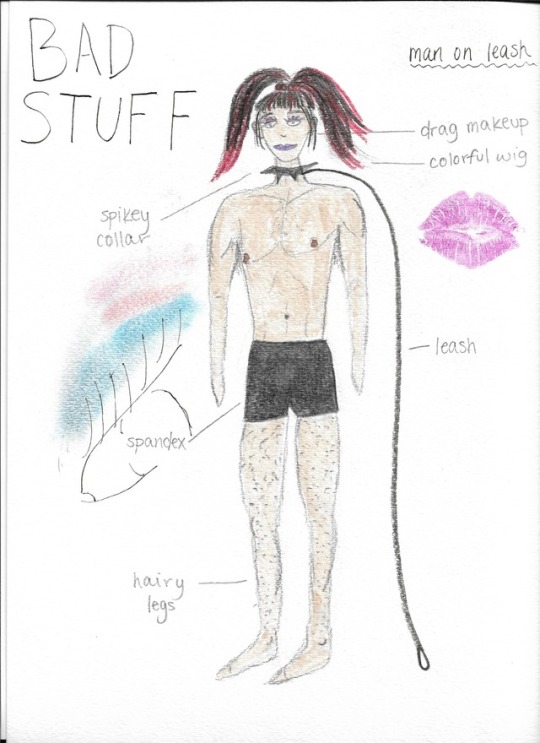 BAD
STUFF
man on leash
drag makeup
colorful wig
spikey
collar
leash
spandex
hairy
legs